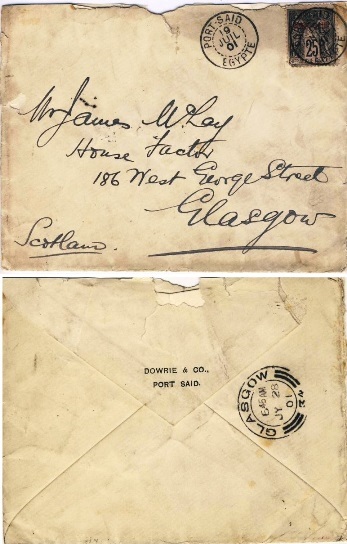 PORT-SAID
19
JUIL
01
EGYPTE
25
Mr James McLay
House Factor
186 West George Street
Glasgow
Scotland.
DOWRIE & CO.,
PORT SAID.
GLASGOW
6.45AM
JY 28
01